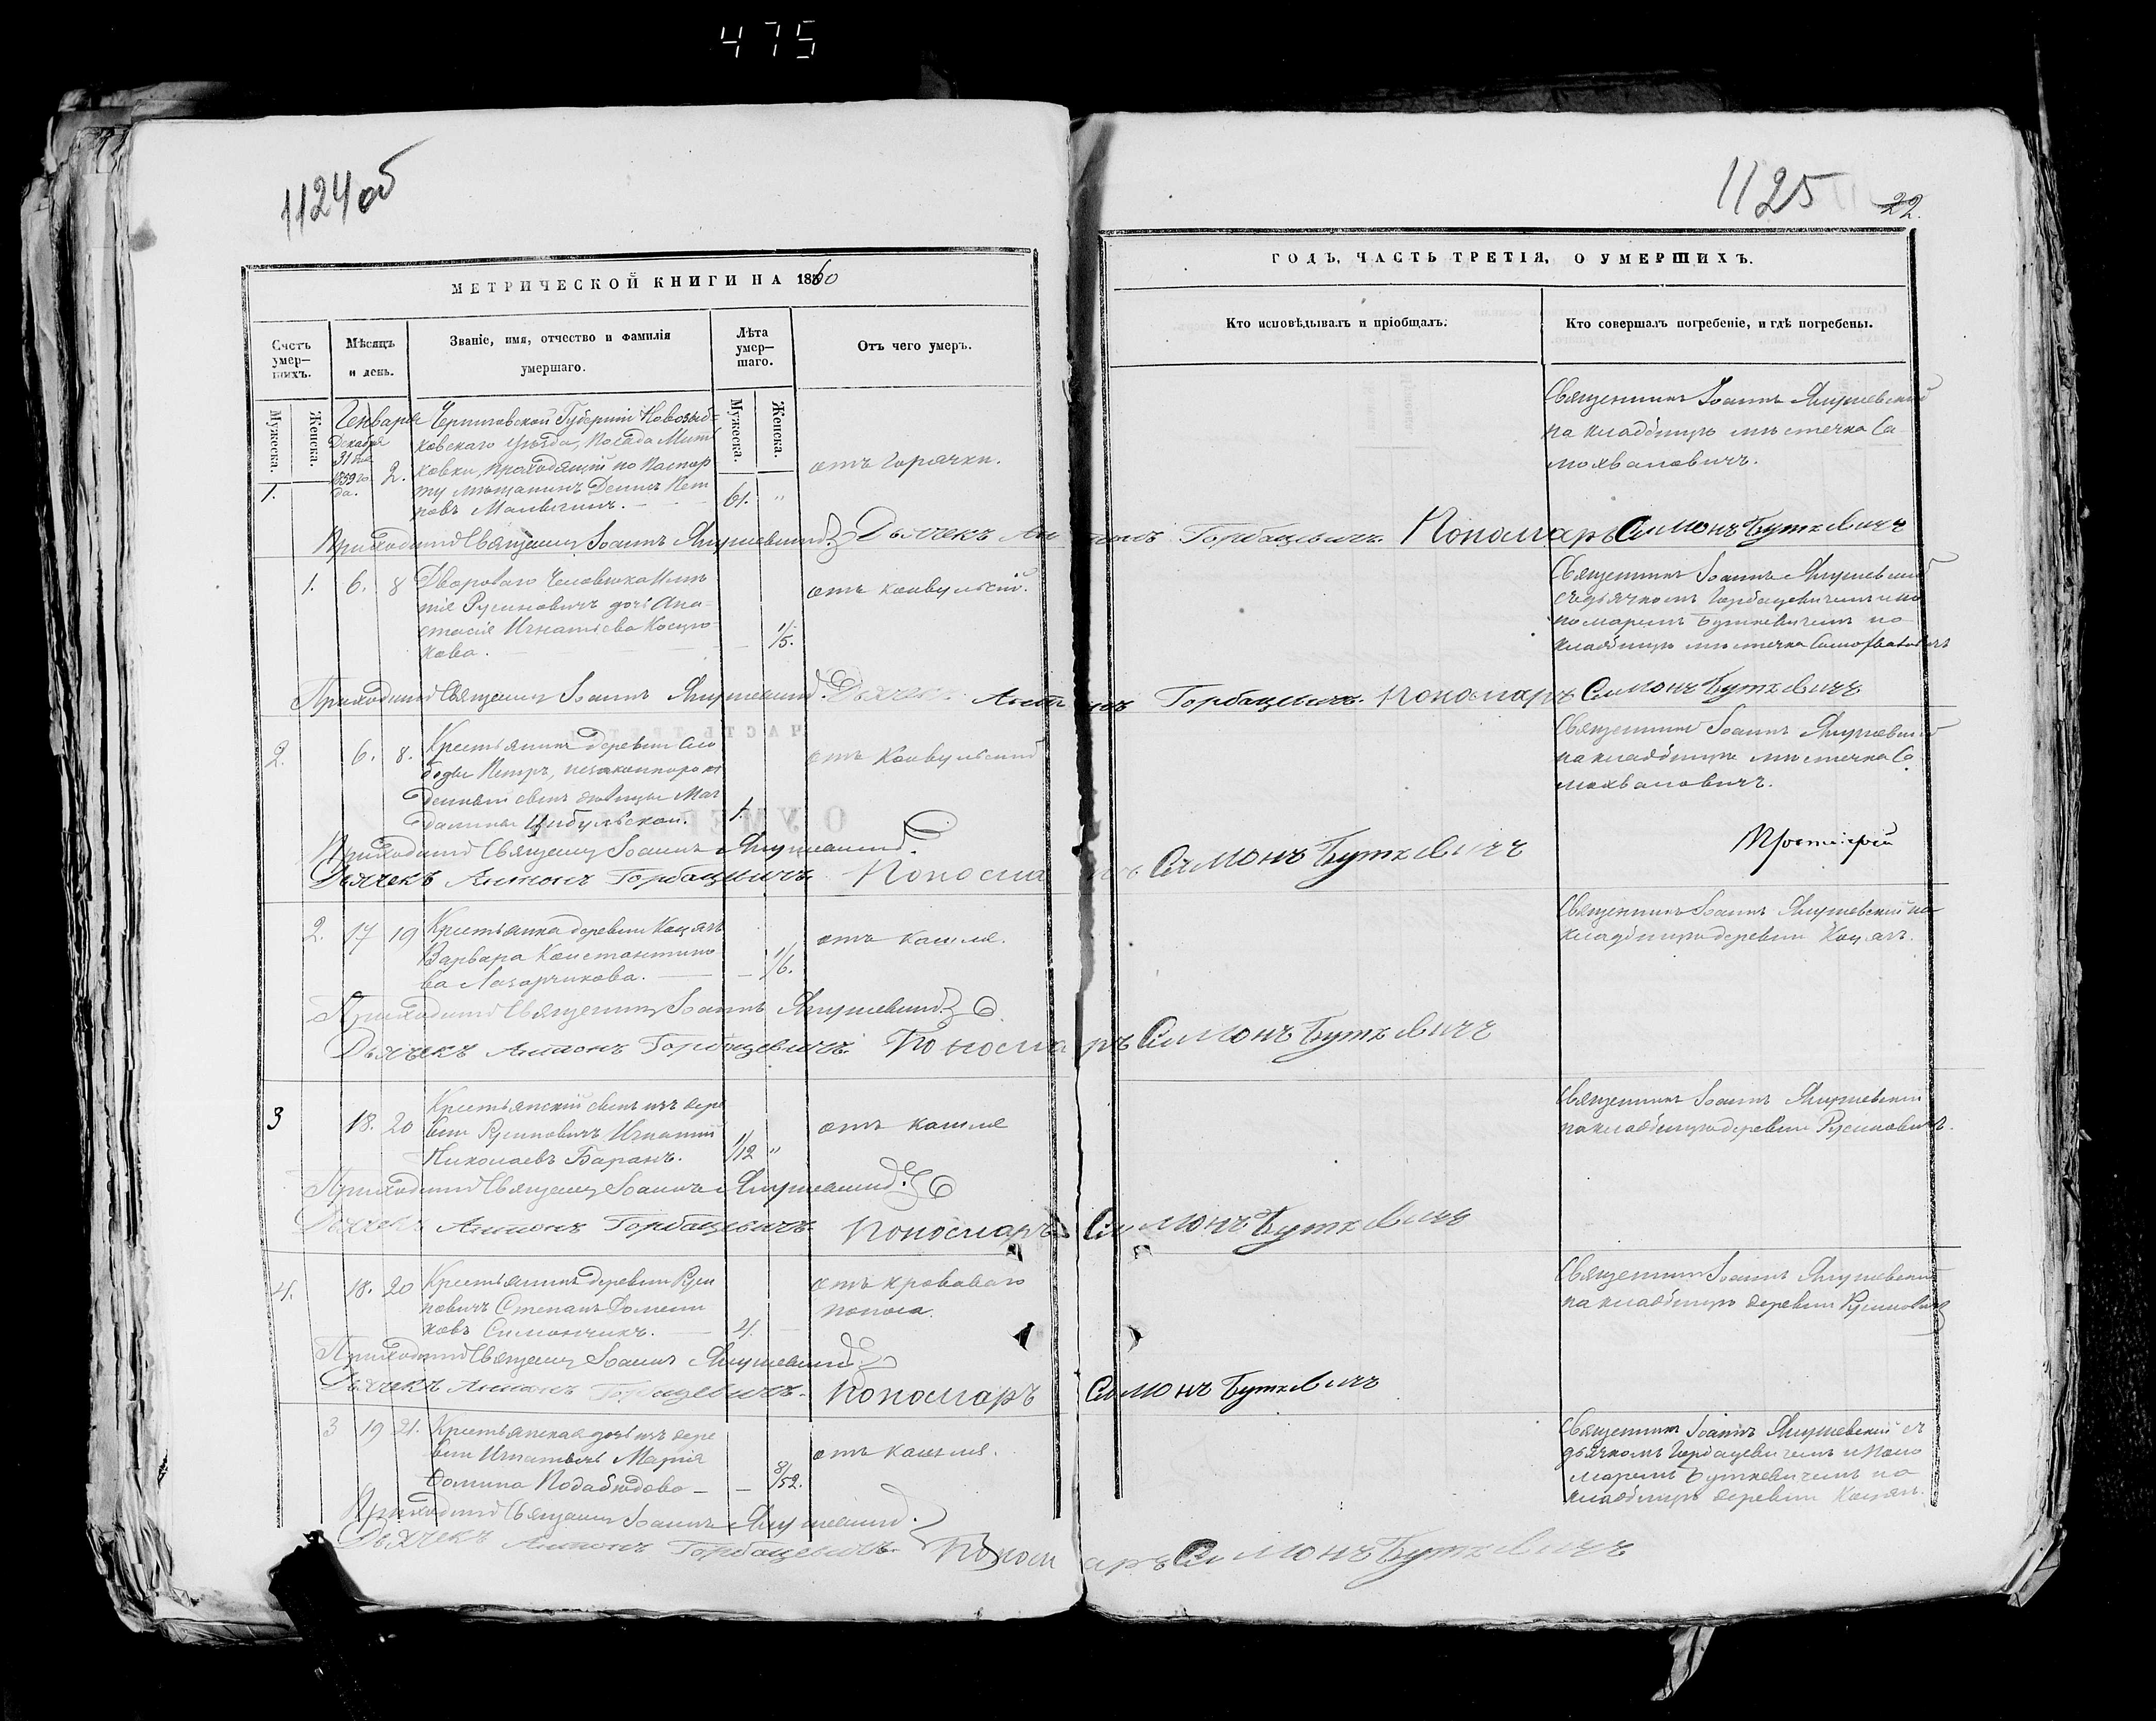 475
1124 об
1125
22.
МЕТРИЧЕСКОЙ КНИГИ НА 1860
ГОДЪ, ЧАСТЬ ТРЕТІЯ, О УМЕРШИХЪ.
Счетъ умер-шихъ.
Мѣсяцъ и день.
Званіе, имя, отчество и фамилія умершаго.
Лѣта умер-шаго.
Отъ чего умеръ.
Кто исповѣдывалъ и пріобщалъ.
Кто совершалъ погребеніе, и гдѣ погребены.
Мужеска.
Женска.
Мужеска.
Женска.
Генварь
Декабря
31 дня
1859 го
да.
1.
2.
Черниговской Губерніи Новозыб=
ковскаго уѣзда, посада Мить
ковки, проходящій по паспор
ту мѣщанинъ Денис Пет
ровъ
61. "
отъ горячки.
Священникъ Іоаннъ Янушевскій
на кладбищѣ мѣстечка Са
мохваловичъ.
Приходскій Священникъ Іоаннъ Янушевскій. Дьячекъ Антонъ Горбацевичъ. Пономарь Симонъ Буткевичъ
1. 6. 8
Двороваго человѣка Игна
тія Русиновичъ дочь Ана=
стасія Игнатьева
1/5.
отъ конвульсій.
Священникъ Іоаннъ Янушевскій
съ дьячкомъ Горбацевичемъ и по
номаремъ Буткевичемъ на
кладбищѣ мѣстечка Самохваловичъ
Приходскій Священникъ Іоаннъ Янушевскій. Дьячекъ Антонъ Горбацевичъ. Пономарь Симонъ Буткевичъ
2. 6. 8.
Крестьянинъ деревни Сло
боды Петръ, незаконнорож
денный сынъ дѣвицы Маг
далины Цыбульской.
1.
отъ конвульсій
Священникъ Іоаннъ Янушевскій
на кладбищѣ мѣстечка Са
мохваловичъ.
Приходскій Священникъ Іоаннъ Янушевскій.
Дьячекъ Антонъ Горбацевичъ. Пономарь Симонъ Буткевичъ
2. 17 19
Крестьянка деревни Коцягъ
Варвара Константино
ва Лазарчикова.
1/6.
отъ кашля.
Священникъ Іоаннъ Янушевскій на
кладбищѣ деревни
Приходскій Священникъ Іоаннъ Янушевскій.
Дьячекъ Антонъ Горбацевичъ. Пономарь Симонъ Буткевичъ
3 18. 20
Крестьянскій сынъ изъ дере
вни Русиновичъ Игнатій
Николаевъ Баранъ.
1/12 "
отъ кашля
Священникъ Іоаннъ Янушевскій
на кладбищѣ деревни Русиновичъ.
Приходскій Священникъ Іоаннъ Янушевскій.
Дьячекъ Антонъ Горбацевичъ. Пономарь Симонъ Буткевичъ
4. 18. 20
Крестьянинъ деревни Руси
новичъ Степанъ Домени
ковъ Симончикъ.
4.
отъ кроваваго
поноса.
Священникъ Іоаннъ Янушевскій
на кладбищѣ деревни Русиновичъ
Приходскій Священникъ Іоаннъ Янушевскій
Дьячекъ Антонъ Горбацевичъ. Пономарь Симонъ Буткевичъ
3 19 21.
Крестьянская дочь изъ дере
вни Игнатичъ Марія
Фомина Подабѣдова
8/52.
отъ кашля.
Священникъ Іоаннъ Янушевскій съ
дьячкомъ Горбацевичемъ и поно
маремъ Буткевичемъ на
кладбищѣ деревни
Приходскій Священникъ Іоаннъ Янушевскій.
Дьячекъ Антонъ Горбацевичъ. Пономарь Симонъ Буткевичъ